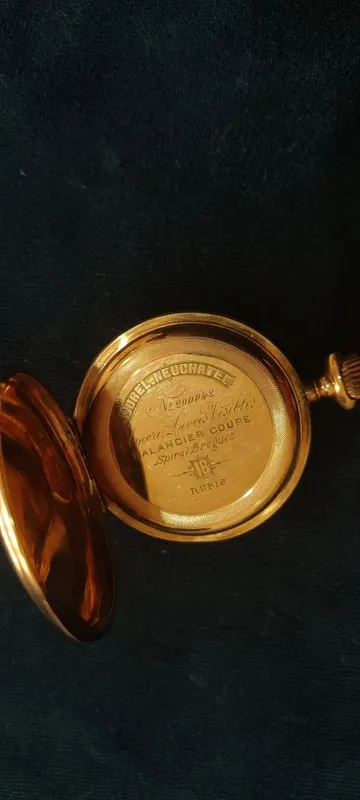 BOREL-NEUCHATEL
No
Ancre Levées Visibles
BALANCIER COUPÉ
Spiral Breguet
RUBIS